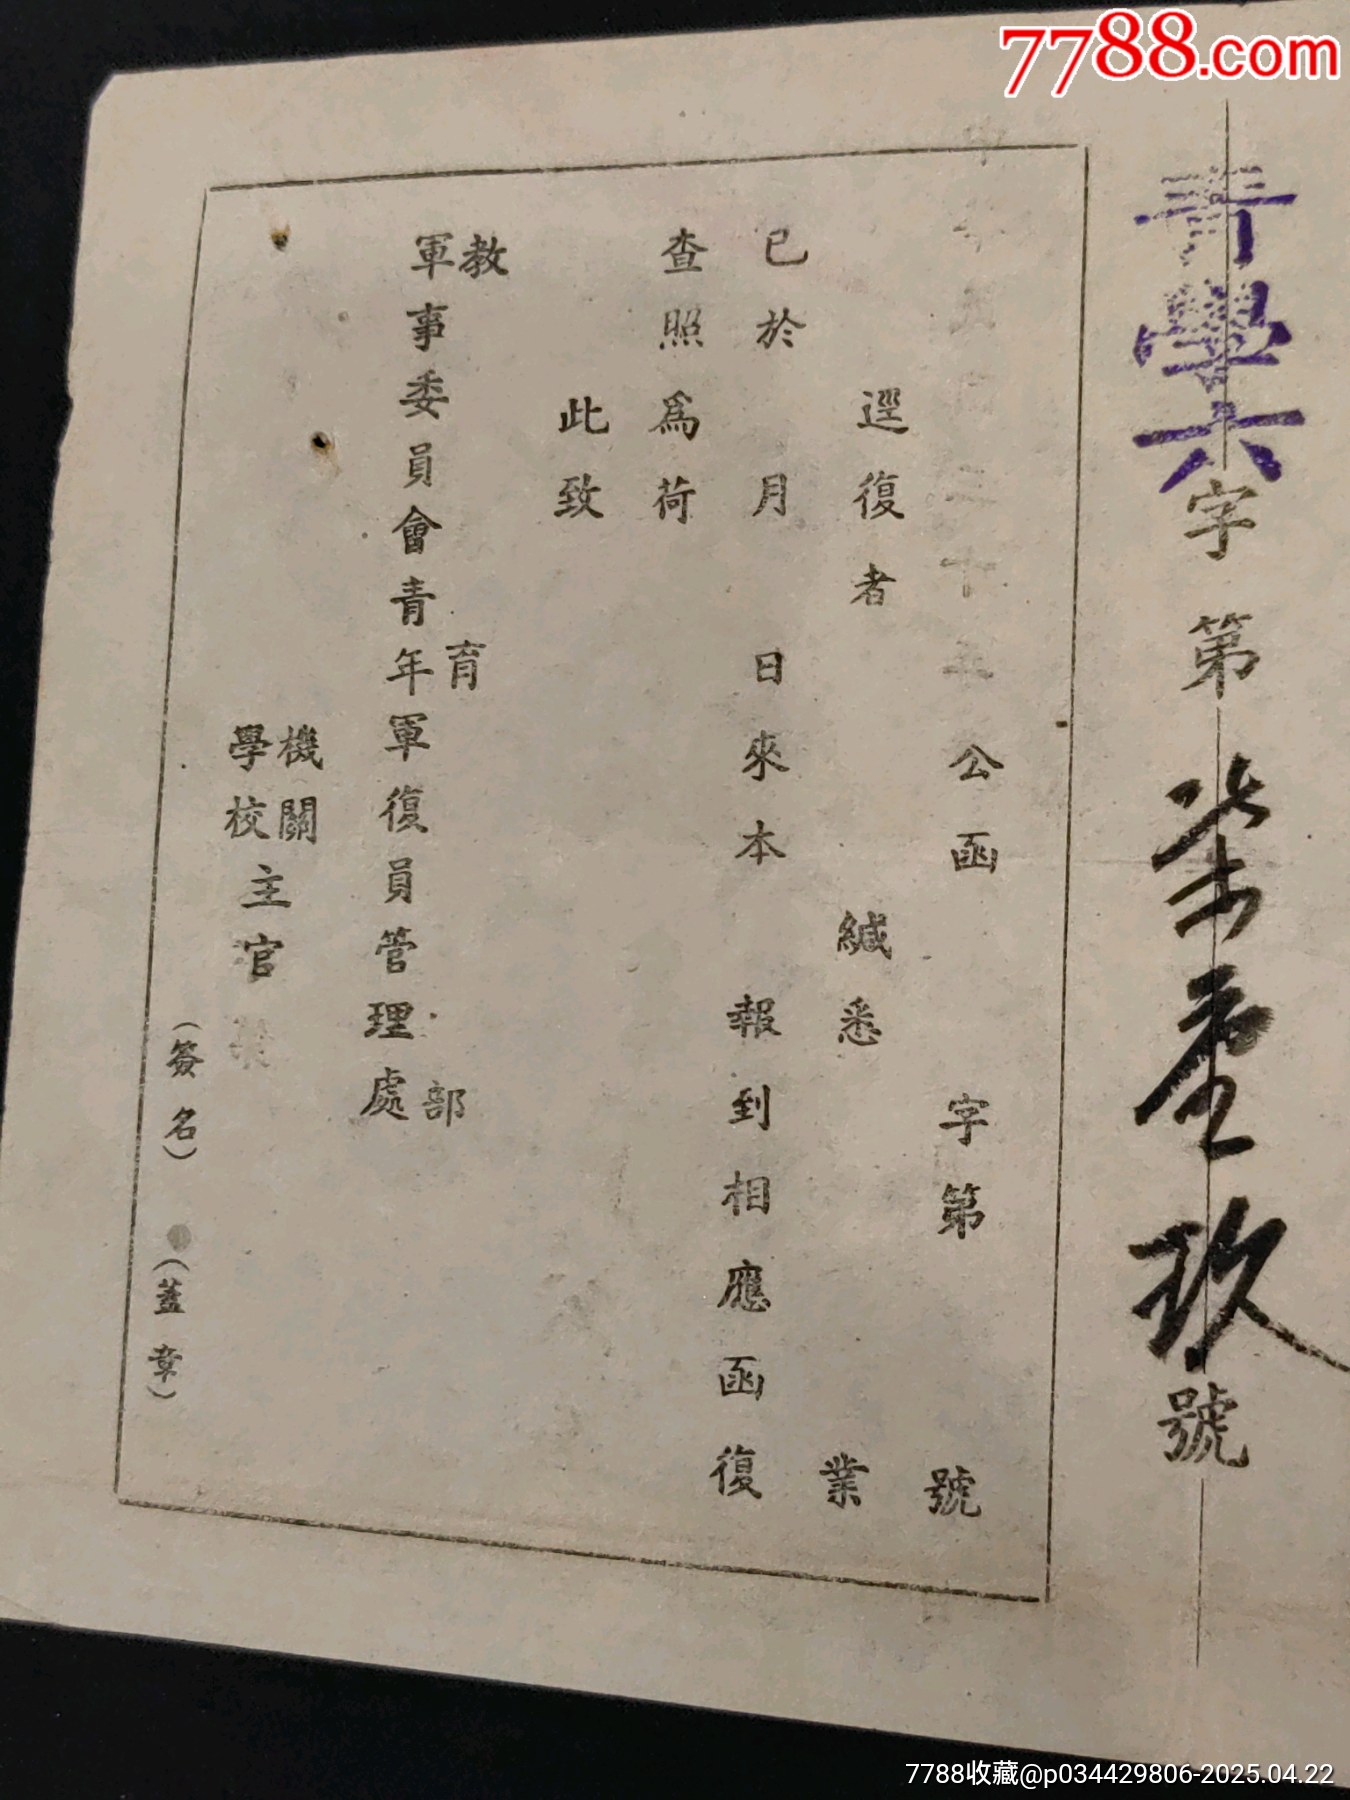 7788.com
學六字第柒壹玖號
公函 字第 號
逕復者 緘悉 業
已於 月 日來本 報到相應函復
查照為荷
此致
教育部
軍事委員會青年軍復員管理處
機關
學校
主官
(簽名) (蓋章)
7788收藏@p034429806-2025.04.22